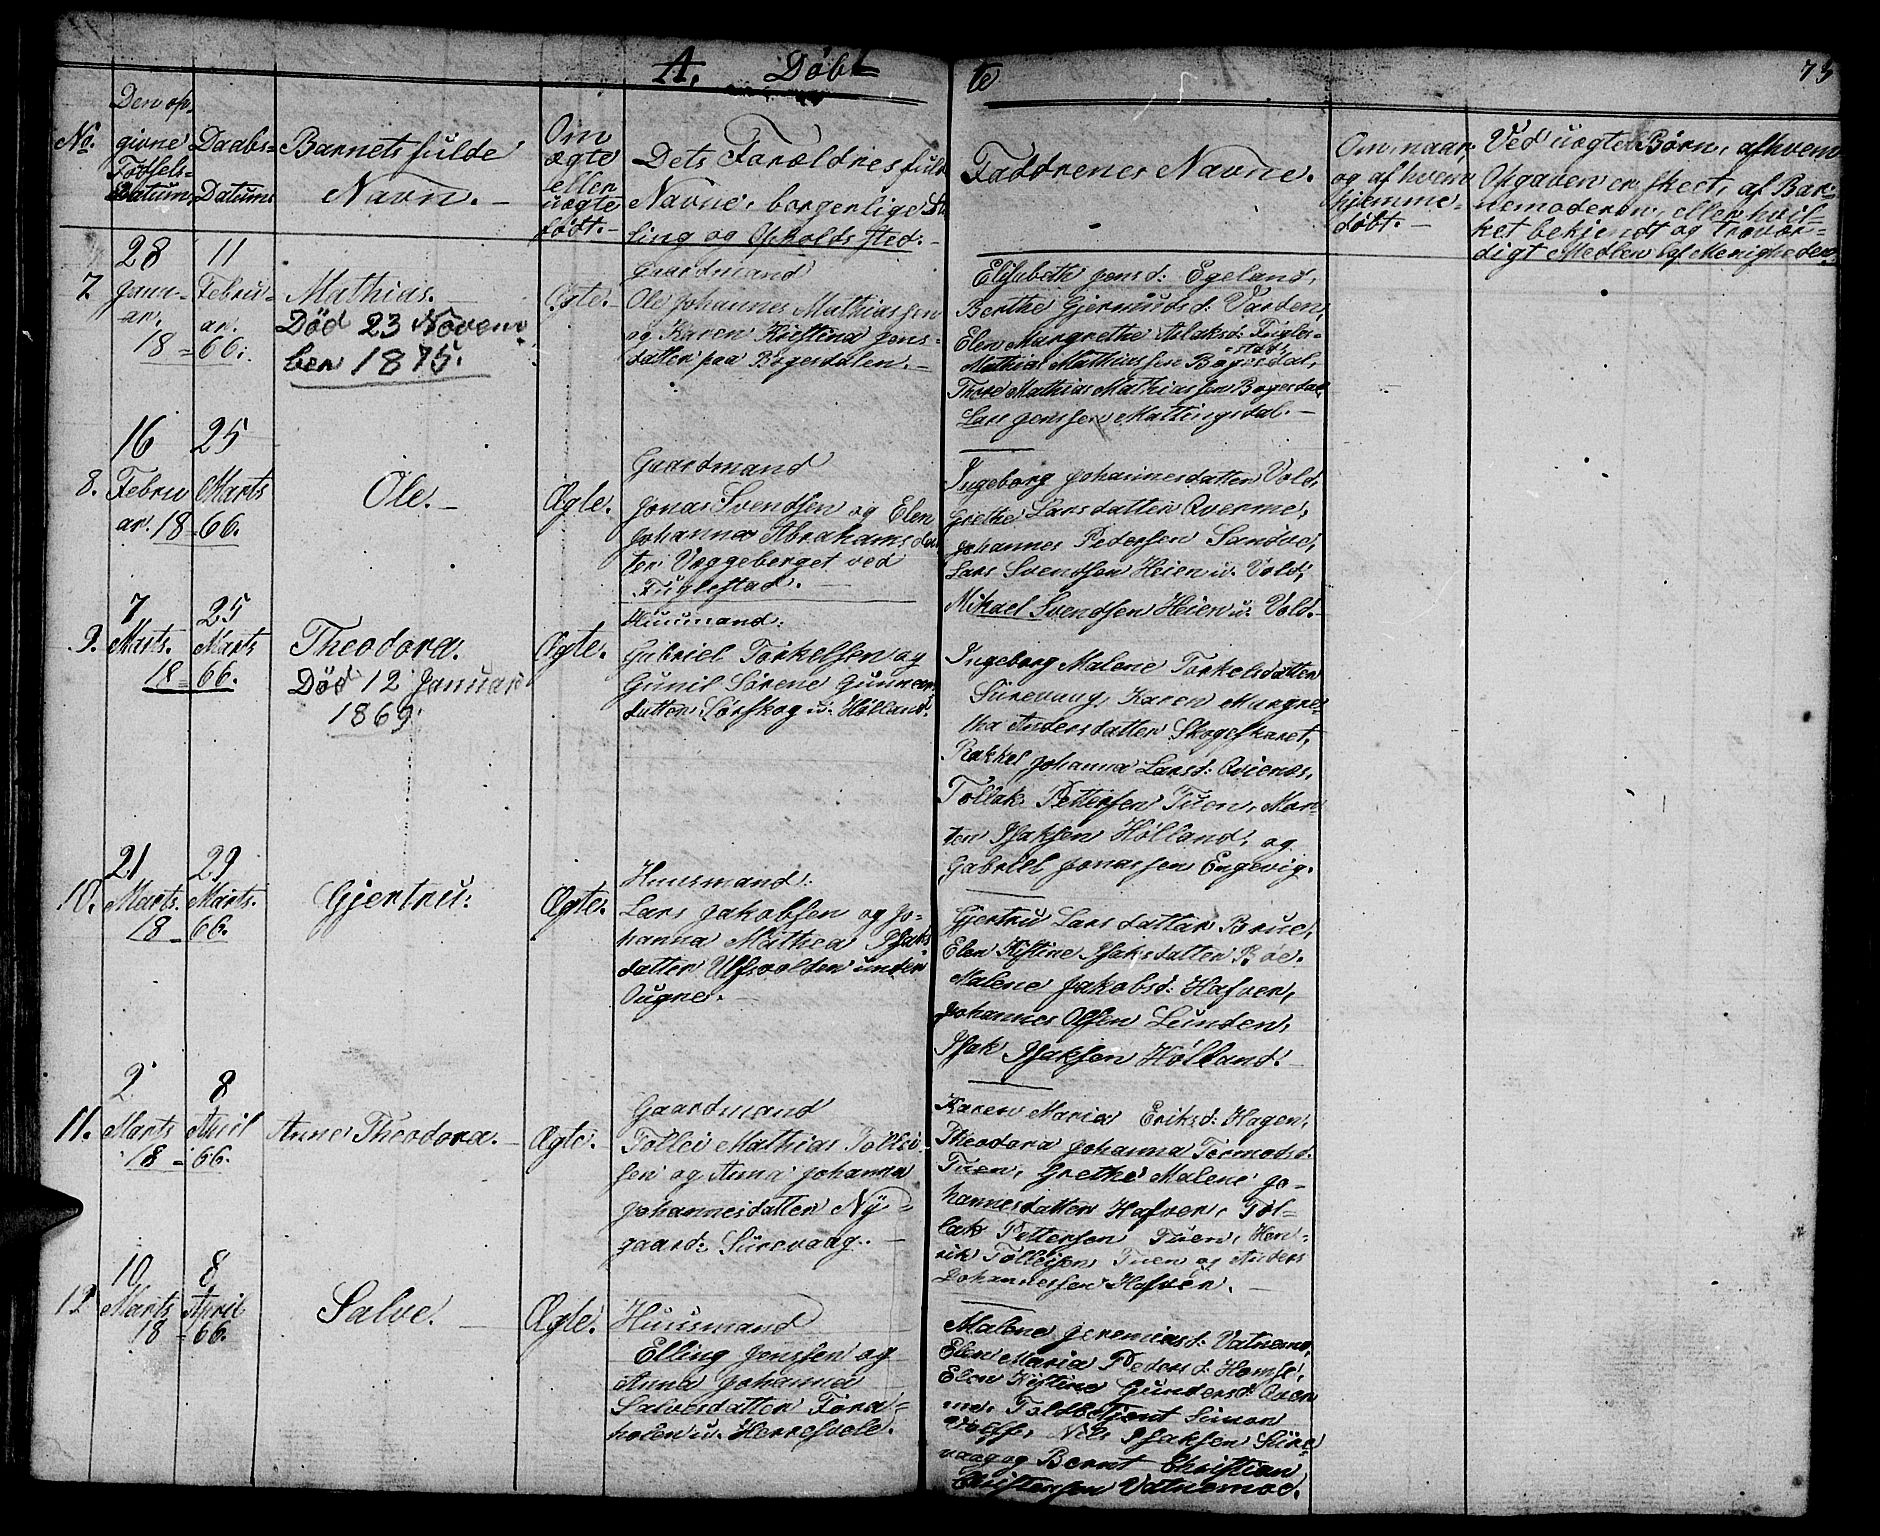 A. Døbte
73
No.
Den op-
givne
Fødsels-
Datum.
Daabs-
Datum.
Barnets fulde
Navn.
Om
ægte
eller
uægte
født.
Dets Forældres fulde
Navne, borgerlige Stil-
ling og Opholdssted.
Faddrenes Navne.
Om, naar,
og af hvem
hjemme-
døbt.
Ved uægte Børn, afhvem
Opgaven er skeet, af Bar-
nemoderen, eller hvil-
ket bekjendt og trovær-
digt Medlem af Menigheden.
7.
28
Janu-
ar.
18
11
Febru-
ar.
66.
Mathias.
Død 23 Novem
ber 1875.
Ægte.
Gaardmand
Ole Johannes Mathiassen
og Karen Kistina Jons-
datter paa Bøgesdalen.
Elisabeth Jensd: Egeland,
Berthe Gjermunds d: Varden,
Elen Margrethe Aslaksd: Fugle-
stad,
Mathias Mathiassen Bøgesdal,
Thore Mathias Mathiassen Bøgesdal
Lars Jenssen Mattingsdal.
8.
16
Febru
ar. 18
25
Marts
66.
Ole.
Ægte.
Gaardmand
Jonas Svendsen og Elen
Johanna Abrahamsdat
ter Vaggeberget ved
Fuglestad.
Ingeborg Johannesdatter Vold,
Grethe Larsdatter Qverme,
Johannes Pedersen Sandve,
Lars Svendsen Heien u. Vold,
Mikael Svendsen Heien u. Vold.
9.
7
Marts.
18
25
Marts
66.
Theodora.
Død 12 Januari
1869.
Ægte.
Huusmand.
Gabriel Torkelsen og
Gunil Sørene Gunnars
datter Sørskog u. Hølland.
Ingeborg Malene Torkelsdatter
Sirevaag, Karen Margre-
tha Andersdatter Skogeskaret,
Rakkel Johanna Larsd: Qvienes,
Tollak Pettersen Tuen, Mor-
ten Isaksen Hølland, og
Gabriel Jonassen Engevig.
10.
21
Marts.
18
29
Marts.
66.
Gjertru.
Ægte.
Huusmand.
Lars Jakobsen og Jo-
hanna Mathea Isaks
datter Ulfsvolden under
Ougne.
Gjertru Larsdatter Brue,
Elen Kistine Isaksdatter Bøe.
Malene Jakobsd: Hafver,
Johannes Olsen Lunden,
Isak Isaksen Hølland.
11.
2
Marts
18
8
April
66.
Anne Theodora.
Ægte.
Gaardmand
Tollei Mathias Tollei-
sen og Anna Johanna
Johannesdatter Ny-
gaard: Sirevaag.
Karen Maria Eriksd: Hagen,
Theodora Johanna Tormodsd:
Tuen, Grethe Malene Jo-
hannesdatter Hafver, Tol-
lak Pettersen Tuen, Hen-
rik Tolleisen Tuen og Anders
Johannessen Hafver.
12
10
Marts
18
8
April
66.
Salve.
Ægte.
Huusmand
Elling Jenssen og
Anna Johanna
Salvesdatter Fora-
holen u. Herresvele.
Malene Jeremiasd: Vatnemo,
Elen Maria Peders d: Homse,
Elen Kistine Gundersd: Qver
me, Toldbetjent Simon
Wolff, Nils Isaksen Sire-
vaag og Bernt Christian
Christensen Vatnemoe.